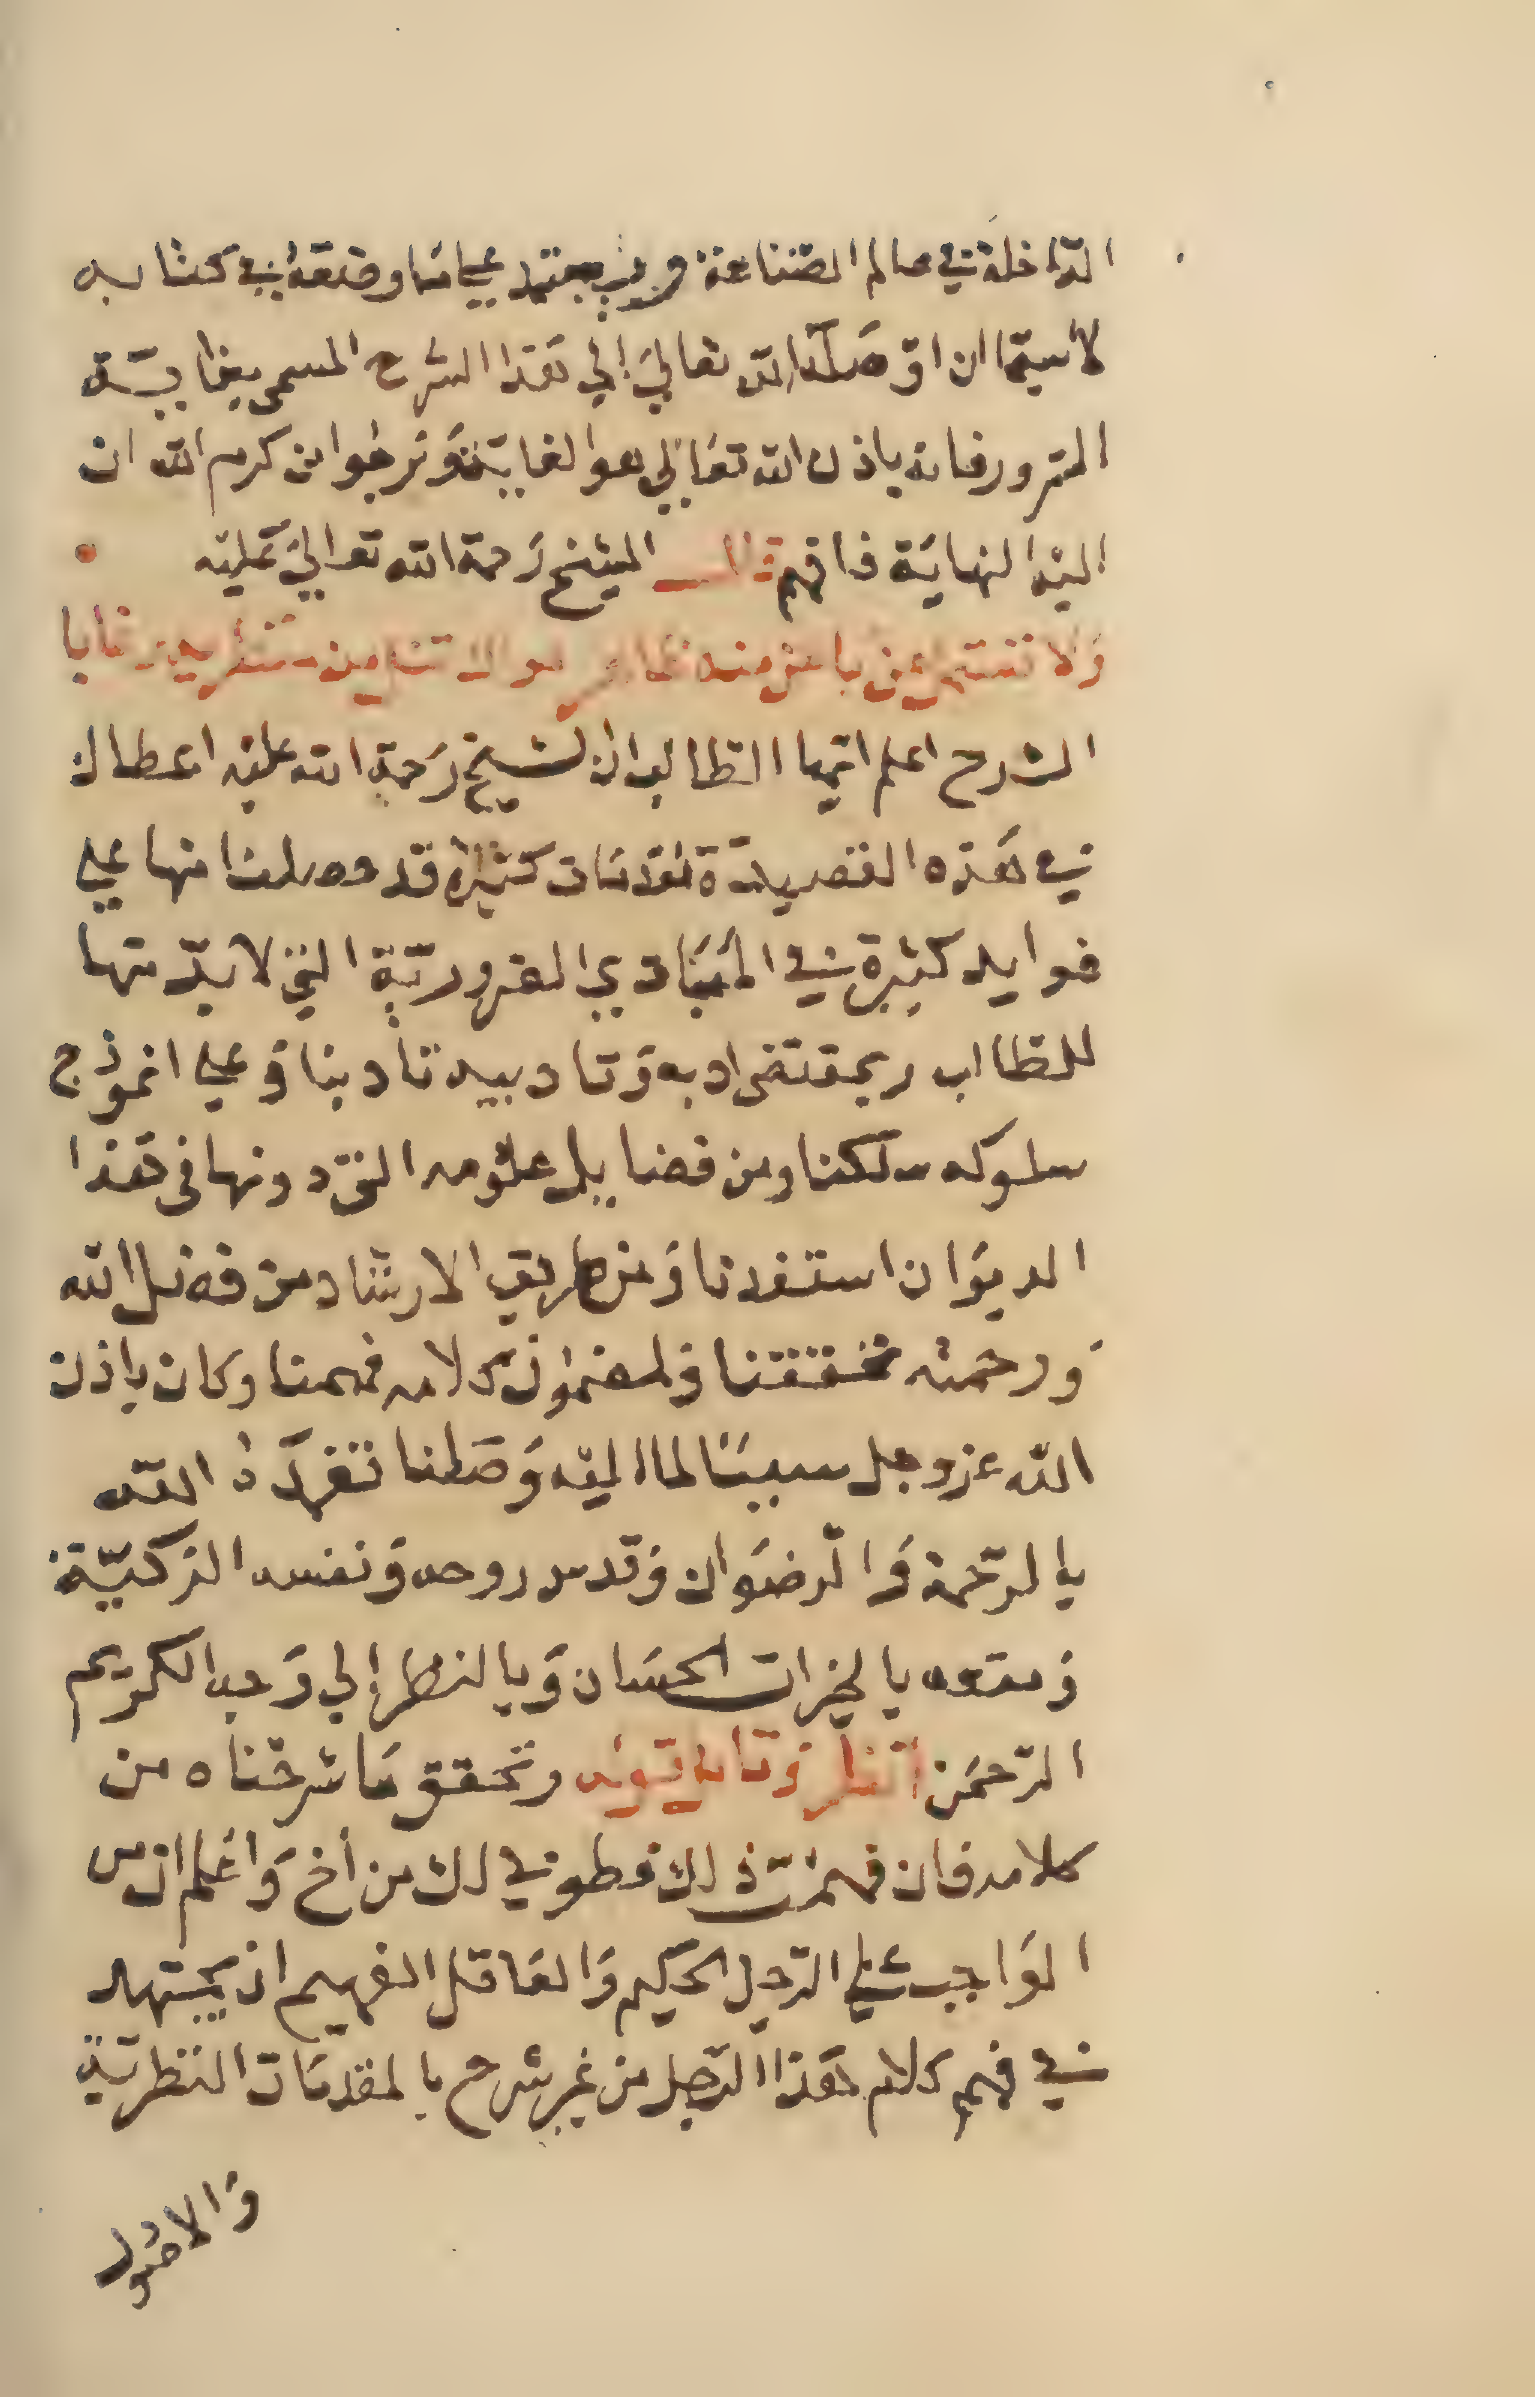 الداخلة في عالم الصناعة ويجتهد علي ما وضعه في كتابه
لا سيما ان اوصله الله تعالي الي هذا الشرح المسمي بغاية
السرور فانه باذن الله تعالي هو الغاية ونرجوا من كرم الله ان
اليه النهاية فافهم قال الشيخ رحمة الله تعالي عليه
ولا تقتنع عن باطن منه ظاهر
الشرح اعلم ايها الطالب ان الشيخ رحمة الله عليه اعطاك
في هذه القصيدة مقدمات كثيرة قد حصلنا منها علي
فوايد كثيرة في المبادي الضرورية التي لا بد منها
للطالب وبمقتضي ادبه وتاديبه تادبنا وعلي انموذج
سلوكه سلكنا ومن فضايل علومه التي دونها في هذا
الديوان استفدنا ومن طريق الارشاد من فضل الله
ورحمته تحققنا ولمضمون كلامه فهمنا وكان باذن
الله عز وجل سببا لما اليه وصلنا تغمده الله
بالرحمة والرضوان وقدس روحه ونفسه الزكية
ومتعه بالخيرات الحسان وبالنظر الي وجه الكريم
الرحمن انظر وتحقق ما شرحناه من
كلامه فان فهمت ذلك فطوبي لك من أخ واعلم ان من
الواجب علي الرجل الحكيم والعاقل الفهيم ان يجتهد
في فهم كلام هذا الرجل من غير شرح بالمقدمات النظرية
والاصول